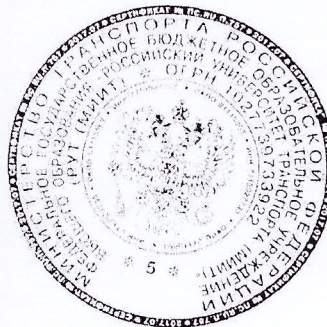 СЕРТИФИКАТ № ПС.RU.П.767 ※ 2017.07 ※
МИНИСТЕРСТВО ТРАНСПОРТА РОССИЙСКОЙ ФЕДЕРАЦИИ
ФЕДЕРАЛЬНОЕ ГОСУДАРСТВЕННОЕ БЮДЖЕТНОЕ ОБРАЗОВАТЕЛЬНОЕ УЧРЕЖДЕНИЕ
ВЫСШЕГО ОБРАЗОВАНИЯ "РОССИЙСКИЙ УНИВЕРСИТЕТ ТРАНСПОРТА (МИИТ)"
(РУТ (МИИТ) ※ ОГРН 1027739733922
※ 5 ※